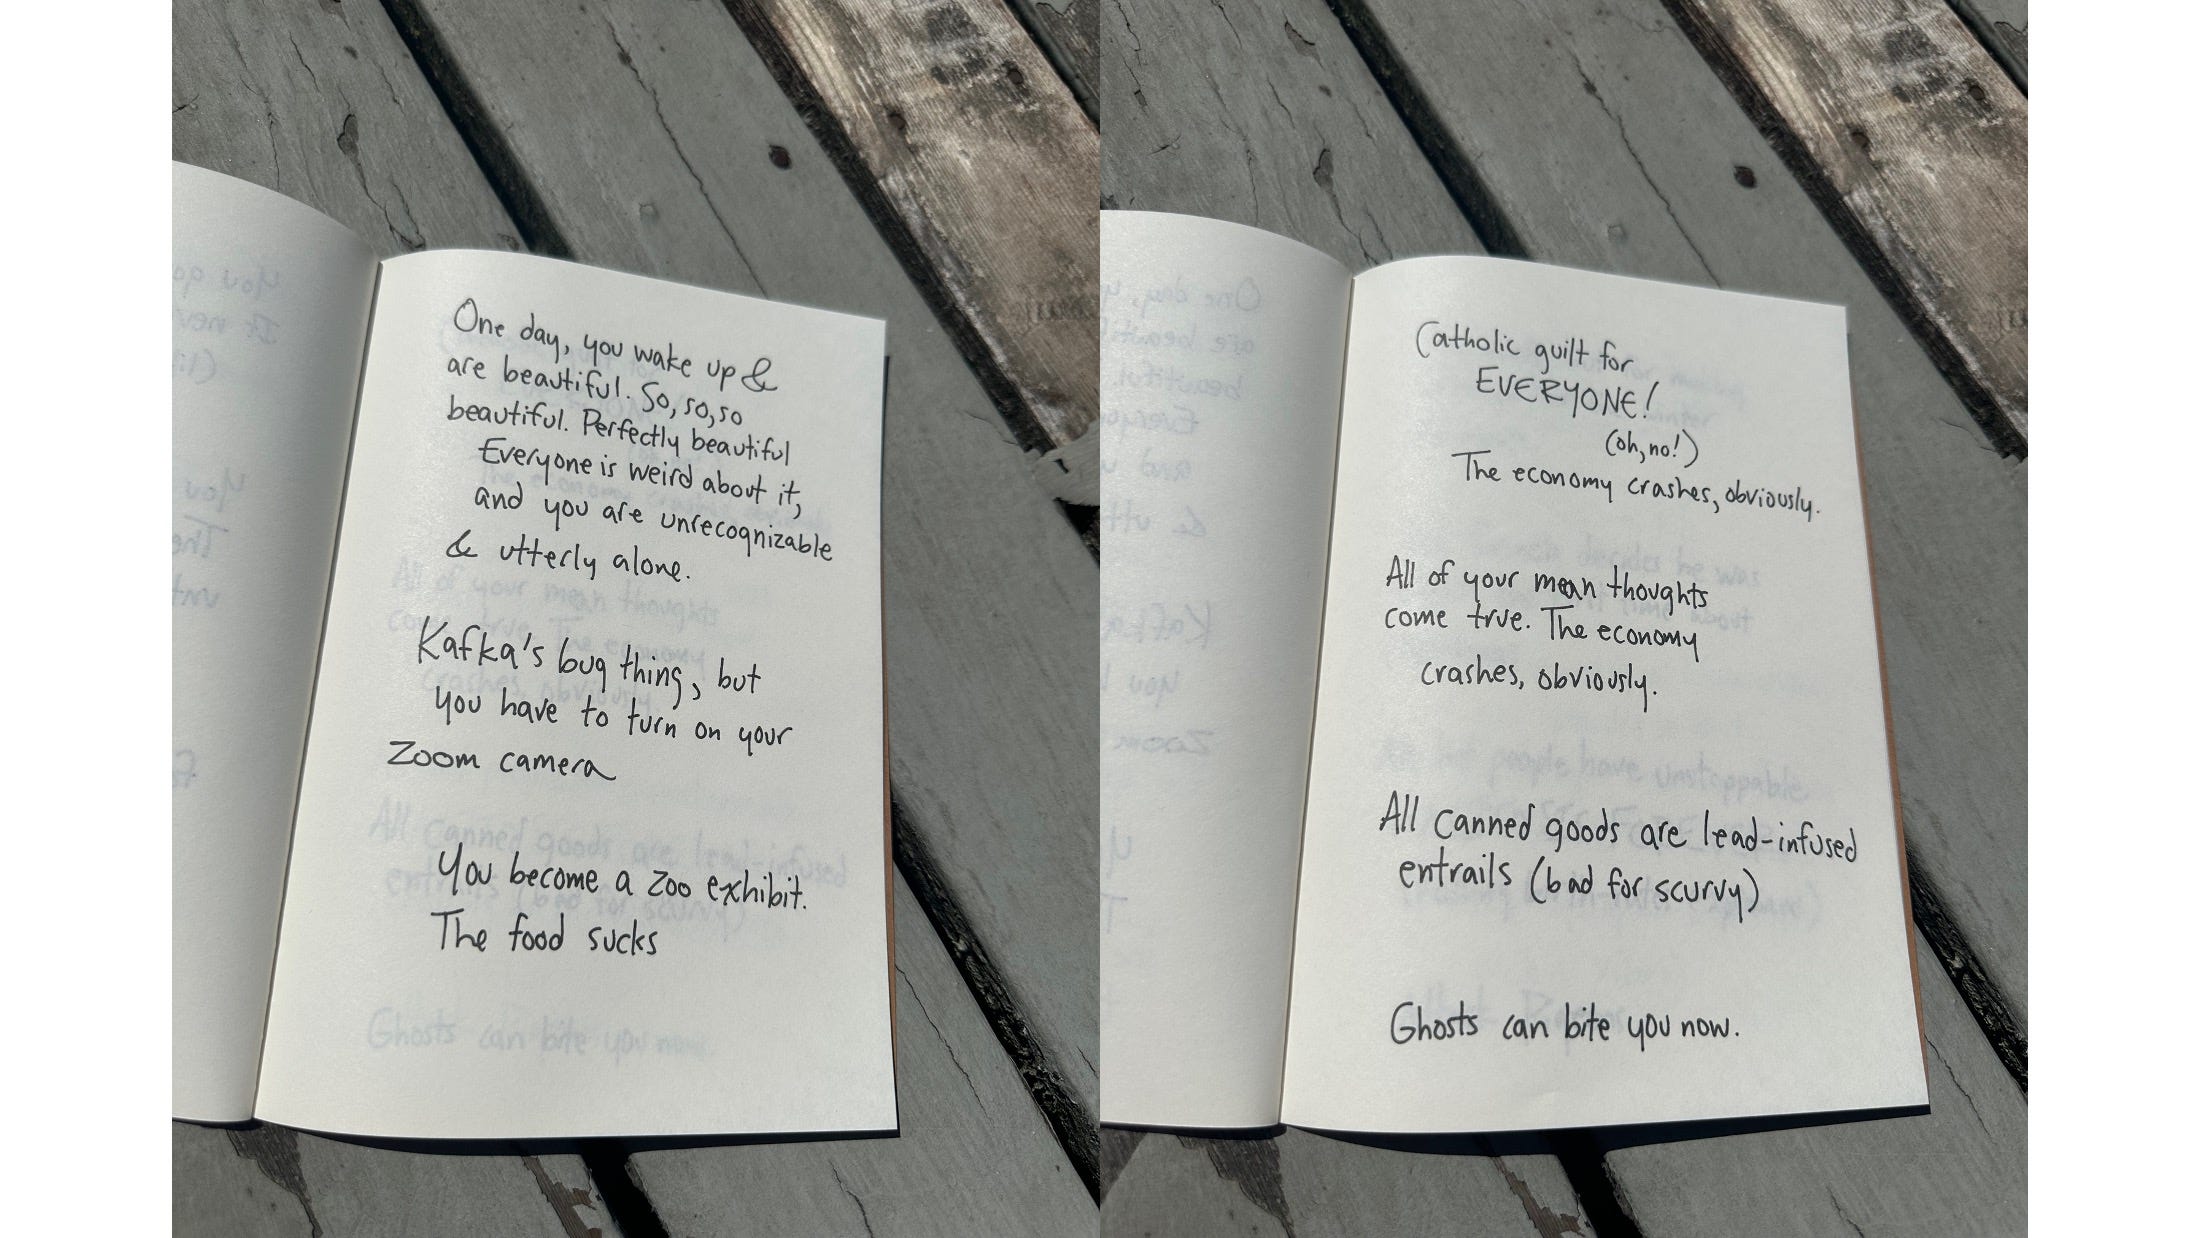 One day, you wake up &
are beautiful. So, so, so
beautiful. Perfectly beautiful
Everyone is weird about it,
and you are unrecognizable
& utterly alone.
Kafka's bug thing, but
you have to turn on your
Zoom camera
You become a zoo exhibit.
The food sucks
Catholic guilt for
EVERYONE!
(oh, no!)
The economy crashes, obviously.
All of your mean thoughts
come true. The economy
crashes, obviously.
All canned goods are lead-infused
entrails (bad for scurvy)
Ghosts can bite you now.